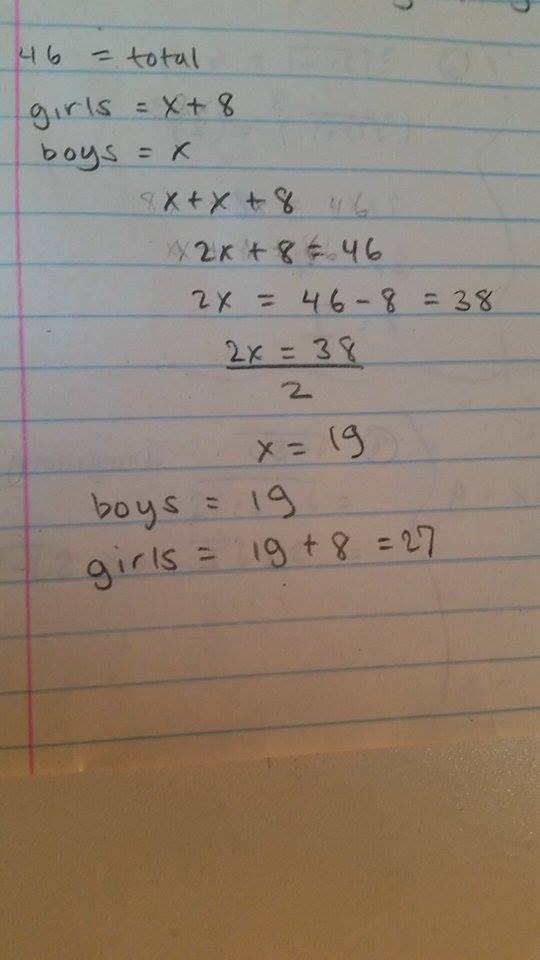 46 = total
girls = x + 8
boys = x
x + x + 8
2x + 8 = 46
2x = 46 - 8 = 38
2x = 38
2
x = 19
boys = 19
girls = 19 + 8 = 27